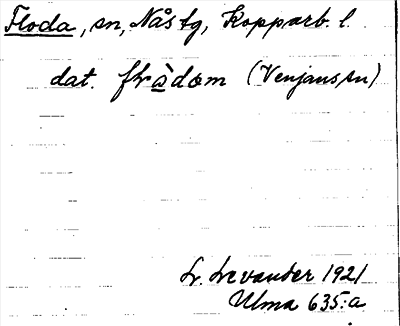 Floda, sn, Nås tg, Kopparb. l.
dat. flràdom (Venjans sn)
L. Levander 1921
Ulma 635:a